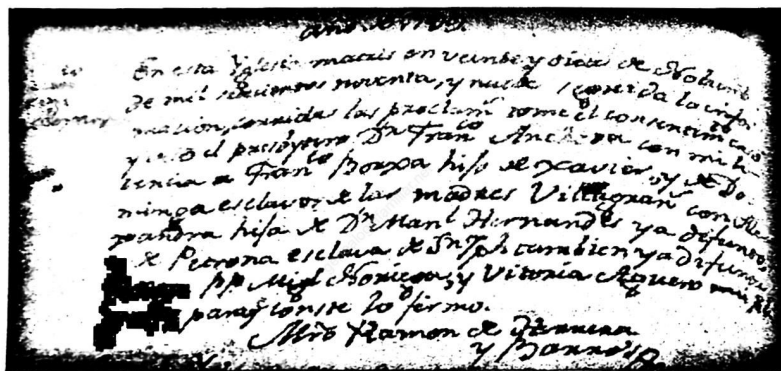 año de 1799.
En esta Iglesia matris en veinte y dias de Nobiembr
de mil setecientos noventa, y nueve recevida la infor
macion, corridas las proclam.s tome el consentim.to caso
y velo el presbytero D.n Fran.co con mi li
cencia a Fran.co Borxa hijo de Xavier, y de Do
minga esclavos de las madres Villagran con Ale
xandra hija de D.n Man.l Hernandes ya difuntos
de Petrona esclava de S.n Jph tambien ya difunta
pp. Mig.l Noriega, y Vitoria Aguero
para q.e conste lo firmo.
Mro Ramon de Herrera
y Barros